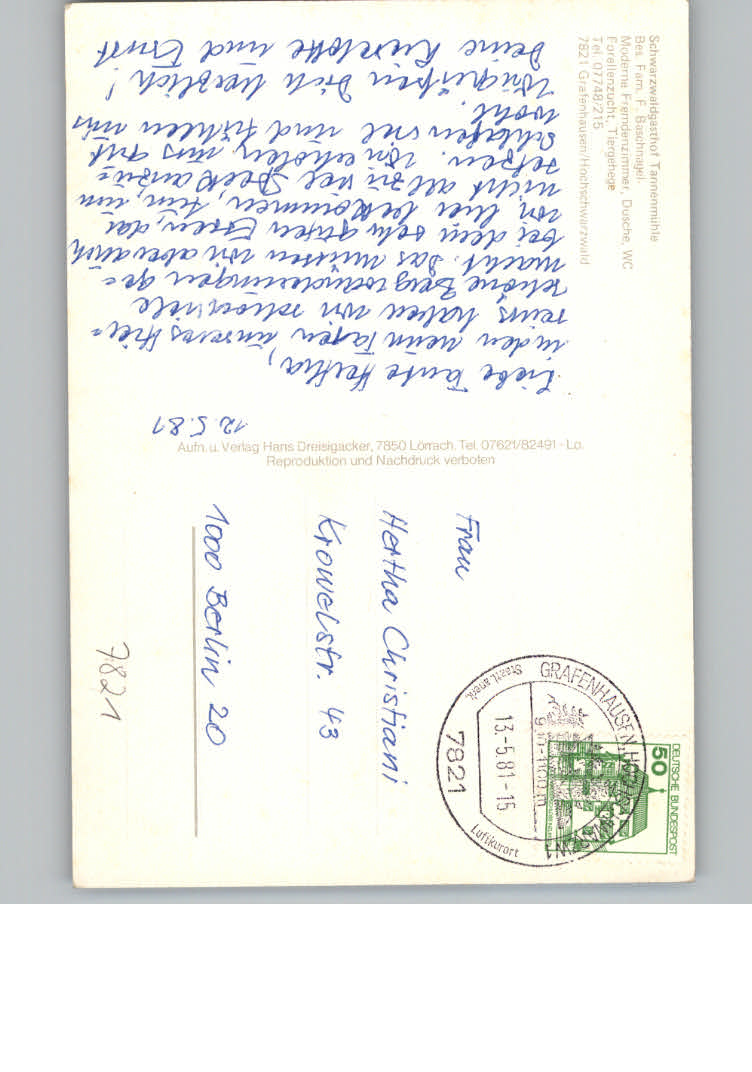 Schwarzwaldgasthof Tannenmühle
Bes. Fam. F. Baschnagel
Moderne Fremdenzimmer, Dusche, WC
Forellenzucht, Tiergehege
Tel. 07748/215
7821 Grafenhausen/Hochschwarzwald
12.5.81
Liebe Tante Hertha,
in den neun Tagen unseres Hier-
seins haben wir schon viele
schöne Bergwanderungen ge-
macht. Das müssen wir aber auch
bei dem sehr guten Essen, das
wir hier bekommen, tun, um
nicht allzu viel Speck anzu-
setzen. Wir erholen uns gut
schlafen viel und fühlen uns
wohl.
Wir grüßen Dich herzlich!
Deine Liselotte und Ernst
Aufn. u. Verlag Hans Dreisigacker, 7850 Lörrach. Tel. 07621/82491 - Lo.
Reproduktion und Nachdruck verboten
Frau
Hertha Christiani
Krowelstr. 43
1000 Berlin 20
7821
DEUTSCHE BUNDESPOST
50
GRAFENHAUSEN, HOCHSCHWARZW 1
Staatl. anerk.
13.-5.81-15
900-1100 m
7821
Luftkurort